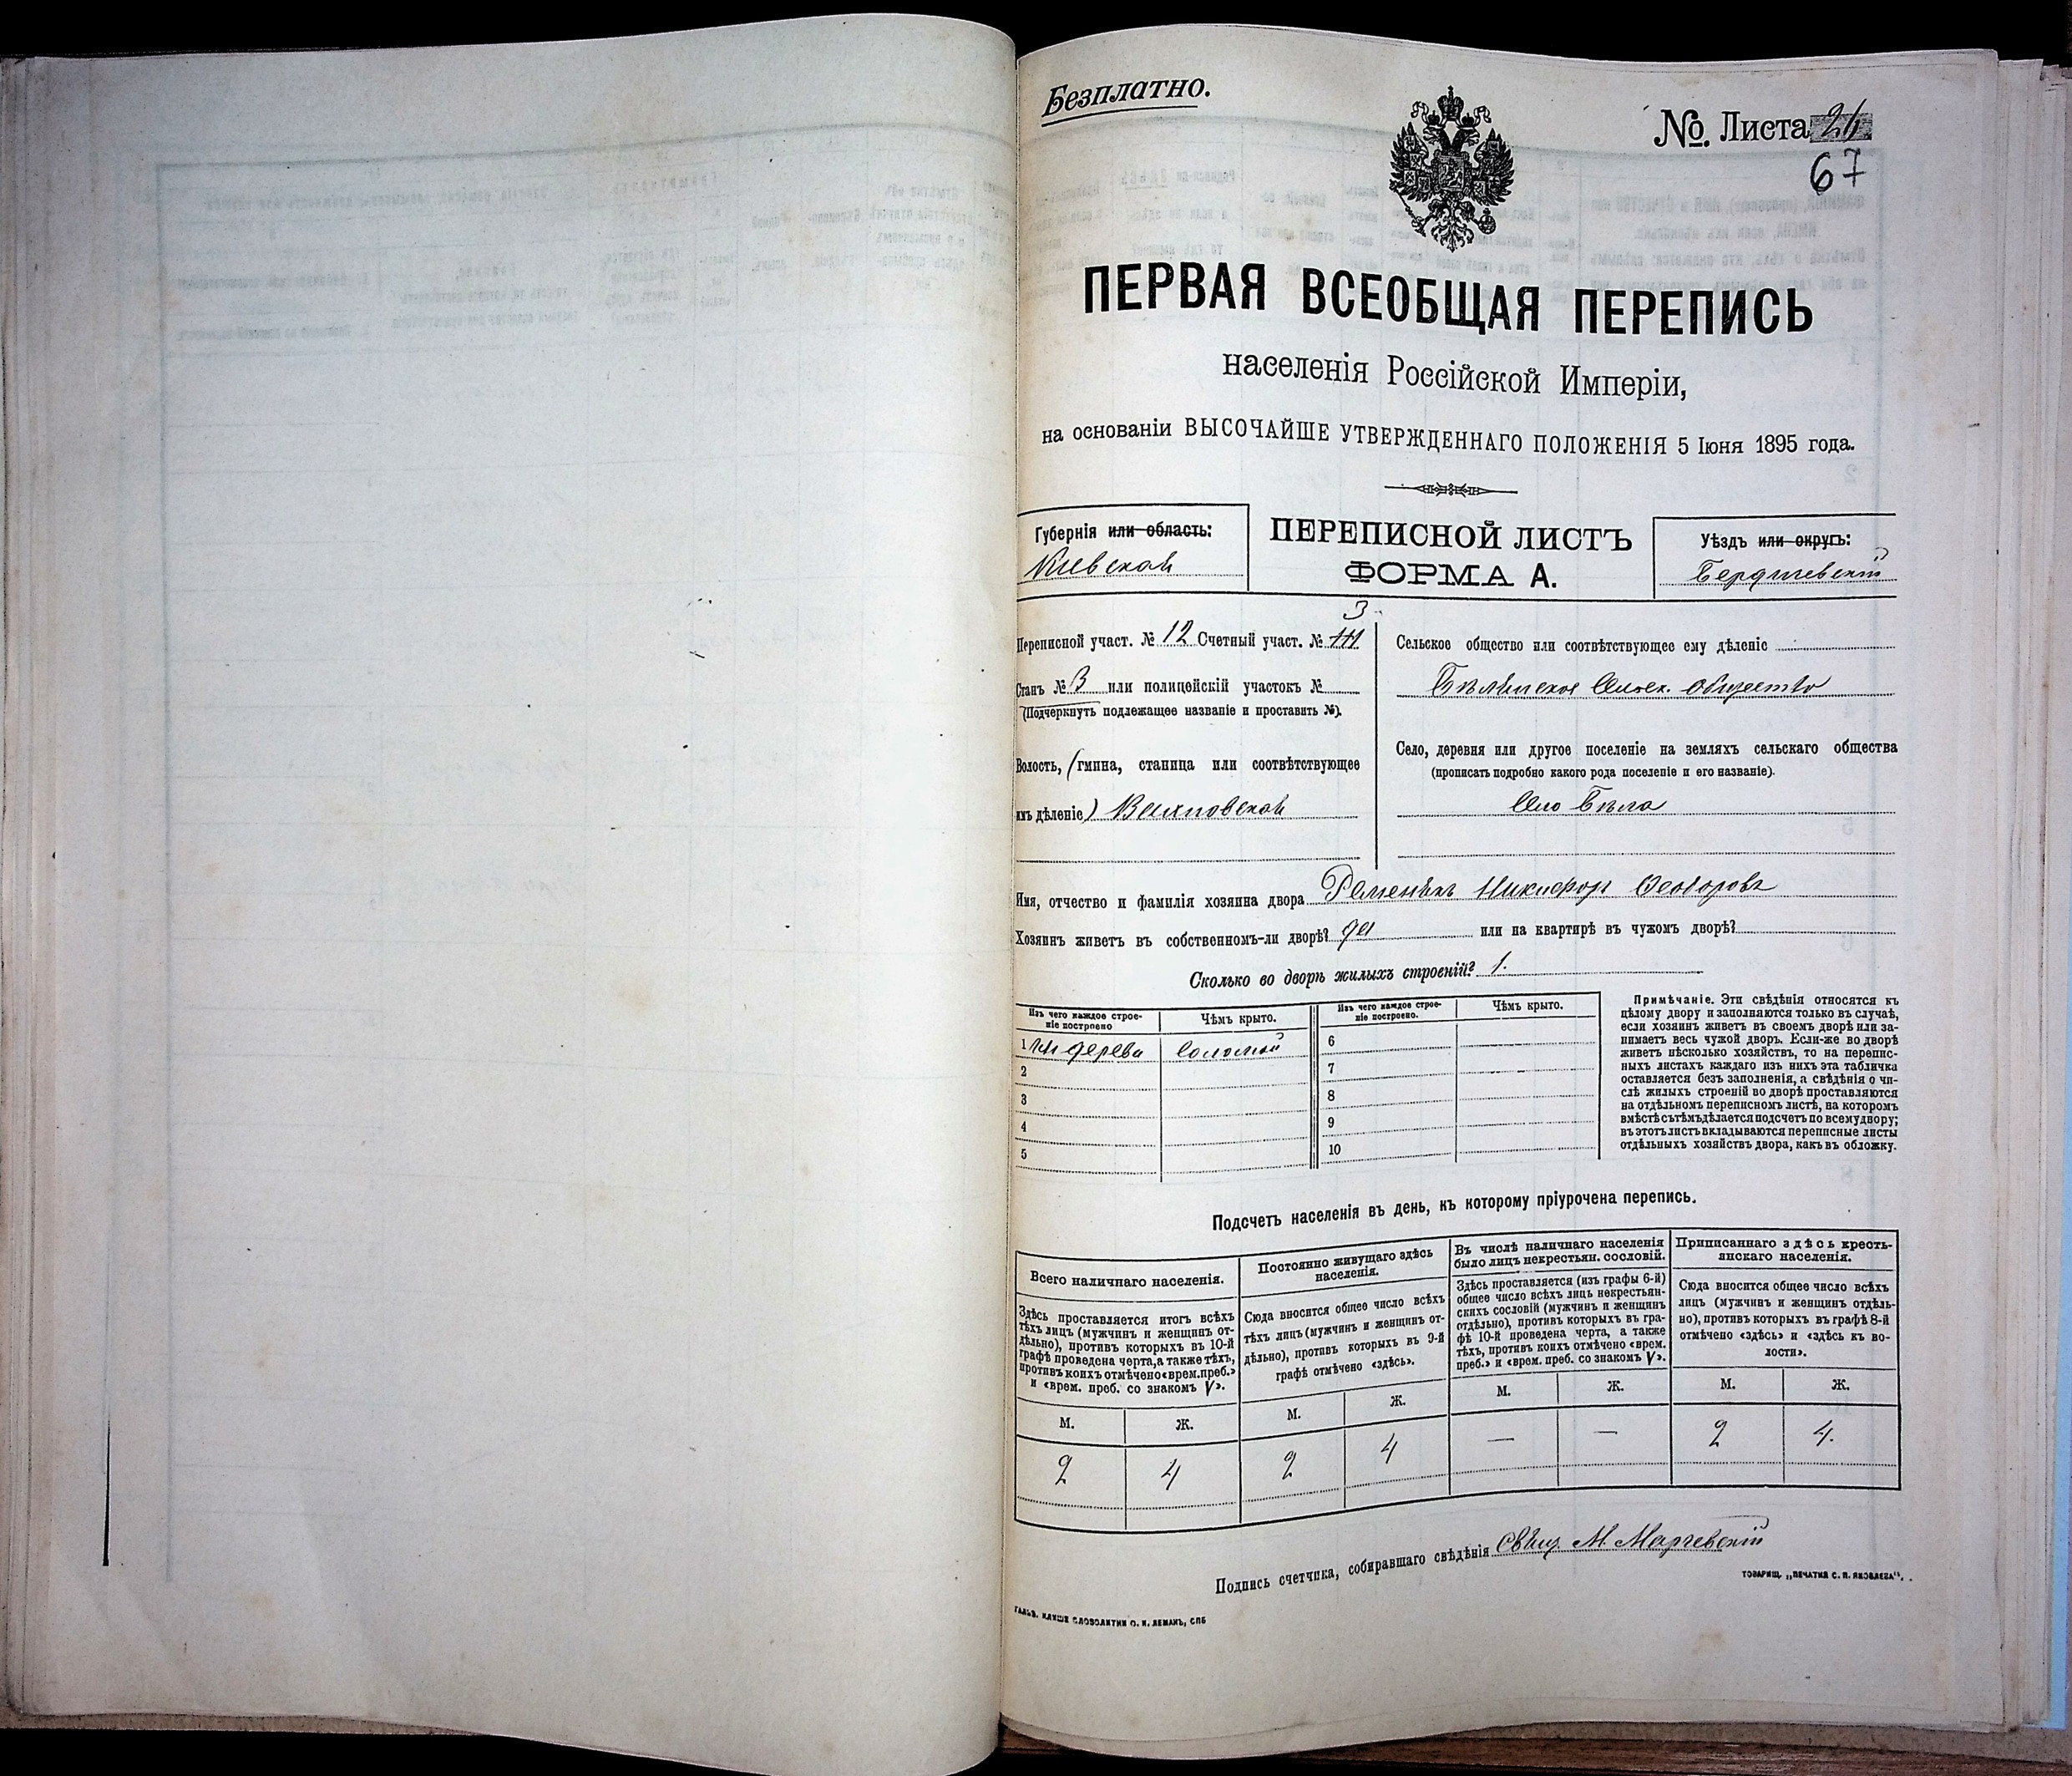 Безплатно.
№. Листа 24
67
ПЕРВАЯ ВСЕОБЩАЯ ПЕРЕПИСЬ
населенія Россійской Имперіи,
на основаніи ВЫСОЧАЙШЕ УТВЕРЖДЕННАГО ПОЛОЖЕНІЯ 5 Іюня 1895 года.
Губернія или область:
Кіевская
ПЕРЕПИСНОЙ ЛИСТЪ
ФОРМА А.
Уѣздъ или округъ:
Бердичевскій
3
Переписной участ. № 12 Счетный участ. № III
Станъ № 3 или полицейскій участокъ №
(Подчеркнуть подлежащее названіе и проставить №).
Волость, (гмина, станица или соотвѣтствующее
имъ дѣленіе)
Сельское общество или соотвѣтствующее ему дѣленіе
Бѣлянское Сельск. общество
Село, деревня или другое поселеніе на земляхъ сельскаго общества
(прописать подробно какого рода поселеніе и его названіе).
Село Бѣла
Имя, отчество и фамилія хозяина двора Никифоръ Ѳеодоровъ
Хозяинъ живетъ въ собственномъ-ли дворѣ? да или на квартирѣ въ чужомъ дворѣ?
Сколько во дворѣ жилыхъ строеній? 1.
Изъ чего каждое строе-
ніе построено
Чѣмъ крыто.
Изъ чего каждое строе-
ніе построено.
Чѣмъ крыто.
1 изъ дерева соломой
2
3
4
5
6
7
8
9
10
Примѣчаніе. Эти свѣдѣнія относятся къ
цѣлому двору и заполняются только въ случаѣ,
если хозяинъ живетъ въ своемъ дворѣ или за-
нимаетъ весь чужой дворъ. Если-же во дворѣ
живетъ нѣсколько хозяйствъ, то на перепис-
ныхъ листахъ каждаго изъ нихъ эта табличка
оставляется безъ заполненія, а свѣдѣнія о чи-
слѣ жилыхъ строеній во дворѣ проставляются
на отдѣльномъ переписномъ листѣ, на которомъ
вмѣстѣ съ тѣмъ дѣлается подсчетъ по всему двору;
въ этотъ листъ вкладываются переписные листы
отдѣльныхъ хозяйствъ двора, какъ въ обложку.
Подсчетъ населенія въ день, къ которому пріурочена перепись.
Всего наличнаго населенія.
Здѣсь проставляется итогъ всѣхъ
тѣхъ лицъ (мужчинъ и женщинъ от-
дѣльно), противъ которыхъ въ 10-й
графѣ проведена черта, а также тѣхъ,
противъ коихъ отмѣчено «врем. преб.»
и «врем. преб. со знакомъ V».
М. Ж.
2 4
Постоянно живущаго здѣсь
населенія.
Сюда вносится общее число всѣхъ
тѣхъ лицъ (мужчинъ и женщинъ от-
дѣльно), противъ которыхъ въ 9-й
графѣ отмѣчено «здѣсь».
М. Ж.
2 4
Въ числѣ наличнаго населенія
было лицъ некрестьян. сословій.
Здѣсь проставляется (изъ графы 6-й)
общее число всѣхъ лицъ некрестьян-
скихъ сословій (мужчинъ и женщинъ
отдѣльно), противъ которыхъ въ гра-
фѣ 10-й проведена черта, а также
тѣхъ, противъ коихъ отмѣчено «врем.
преб.» и «врем. преб. со знакомъ V».
М. Ж.
— —
Приписаннаго здѣсь кресть-
янскаго населенія.
Сюда вносится общее число всѣхъ
лицъ (мужчинъ и женщинъ отдѣль-
но), противъ которыхъ въ графѣ 8-й
отмѣчено «здѣсь» и «здѣсь къ во-
лости».
М. Ж.
2 4.
Подпись счетчика, собиравшаго свѣдѣнія Свящ. М.
ТОВАРИЩ. „ПЕЧАТНЯ С. П. ЯКОВЛЕВА“.
ГАЛЬВ. КЛИШЕ СЛОВОЛИТНИ О. И. ЛЕМАНЪ, СПБ